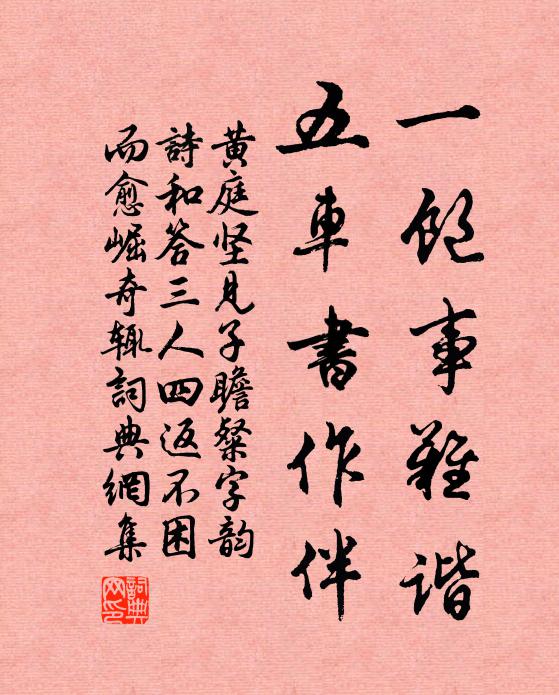 一飽事難谐
五車書作伴
黄庭坚見子瞻粲字韵
詩和答三人四返不困
而愈崛奇輒詞典網集
詞典
网印